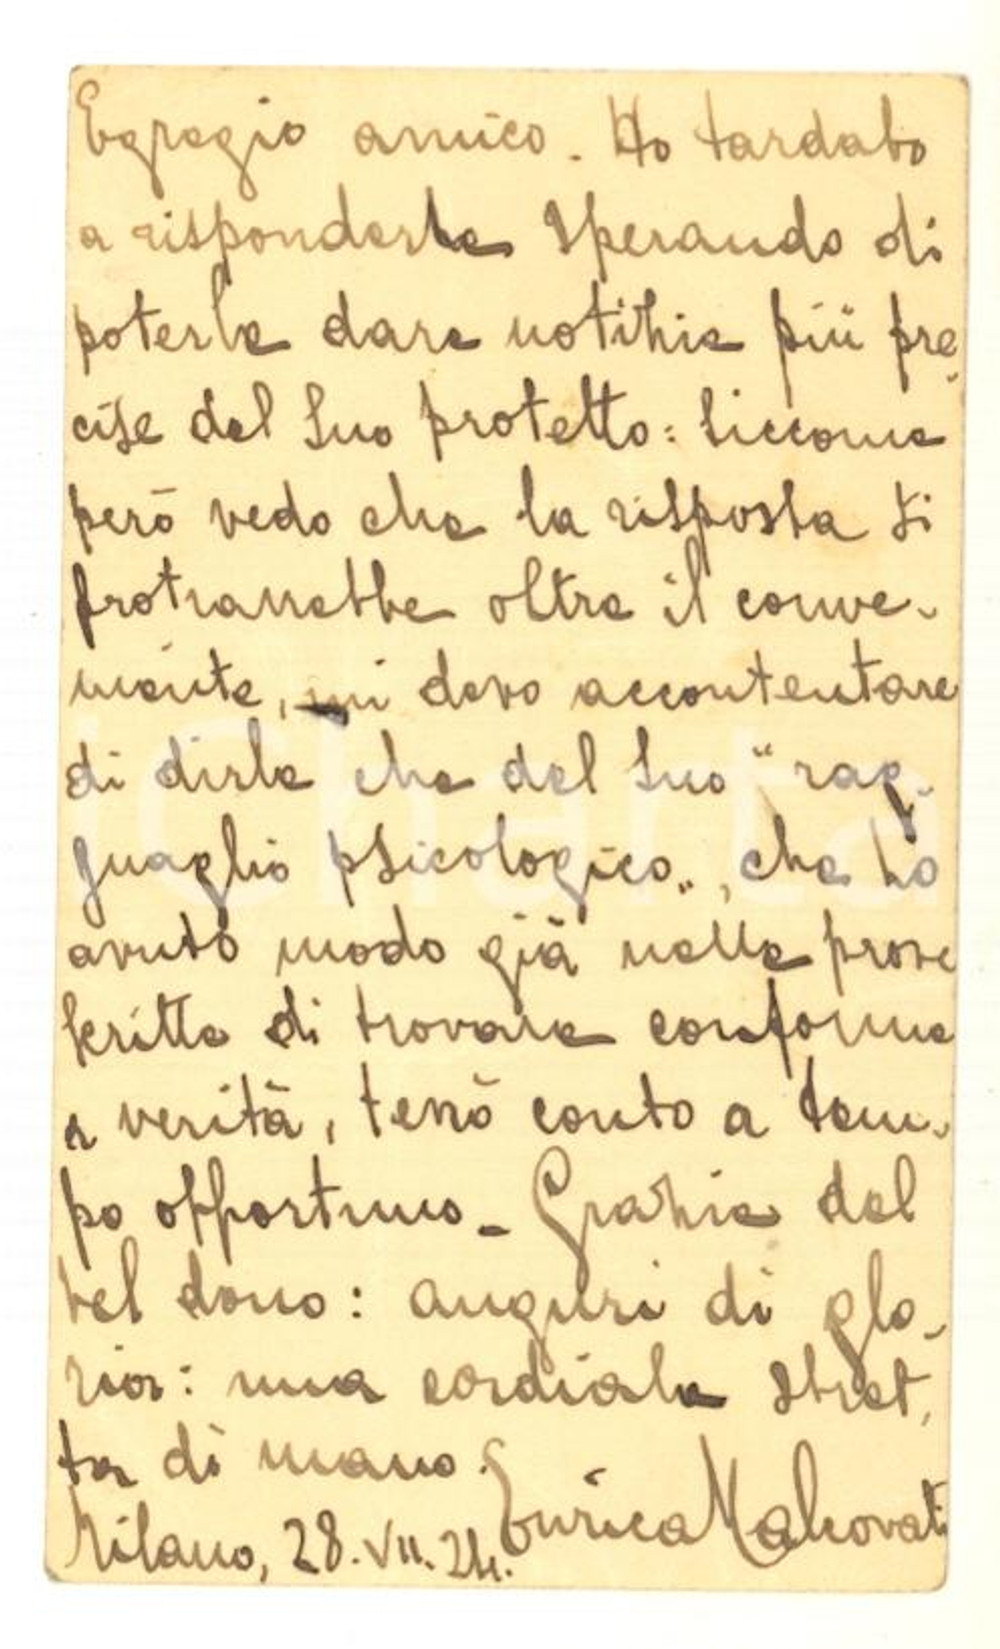 Egregio amico. Ho tardato
a risponderle sperando di
poterle dare notizie più pre-
cise del Suo protetto: siccome
però vedo che la risposta si
protrarrebbe oltre il conve-
niente, mi devo accontentare
di dirle che del Suo "rag-
guaglio psicologico", che ho
avuto modo già nelle prove
scritte di trovare conforme
a verità, terrò conto a tem-
po opportuno - Grazie del
bel dono: auguri di glo-
ria: una cordiale stret-
ta di mano.
Enrica Malcovati
Milano, 28.VII.24.
iCharta